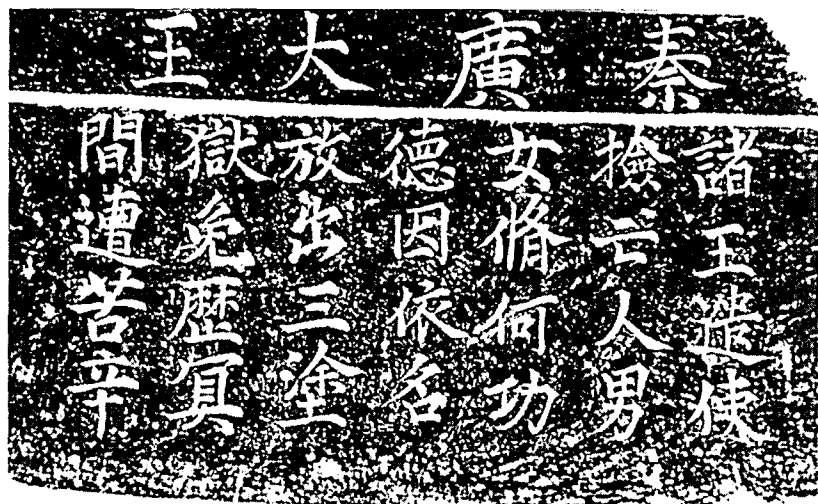 秦廣大王
諸王遣使
撿亡人男
女脩何功
德因依名
放出三塗
獄免歷冥
間遭苦辛